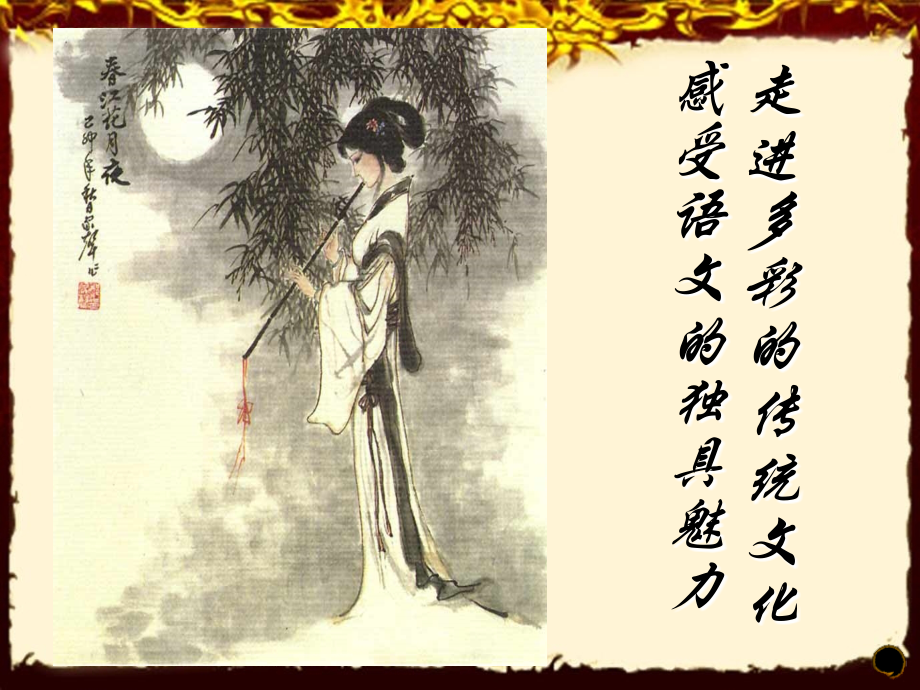 走进多彩的传统文化
感受语文的独具魅力
春江花月夜